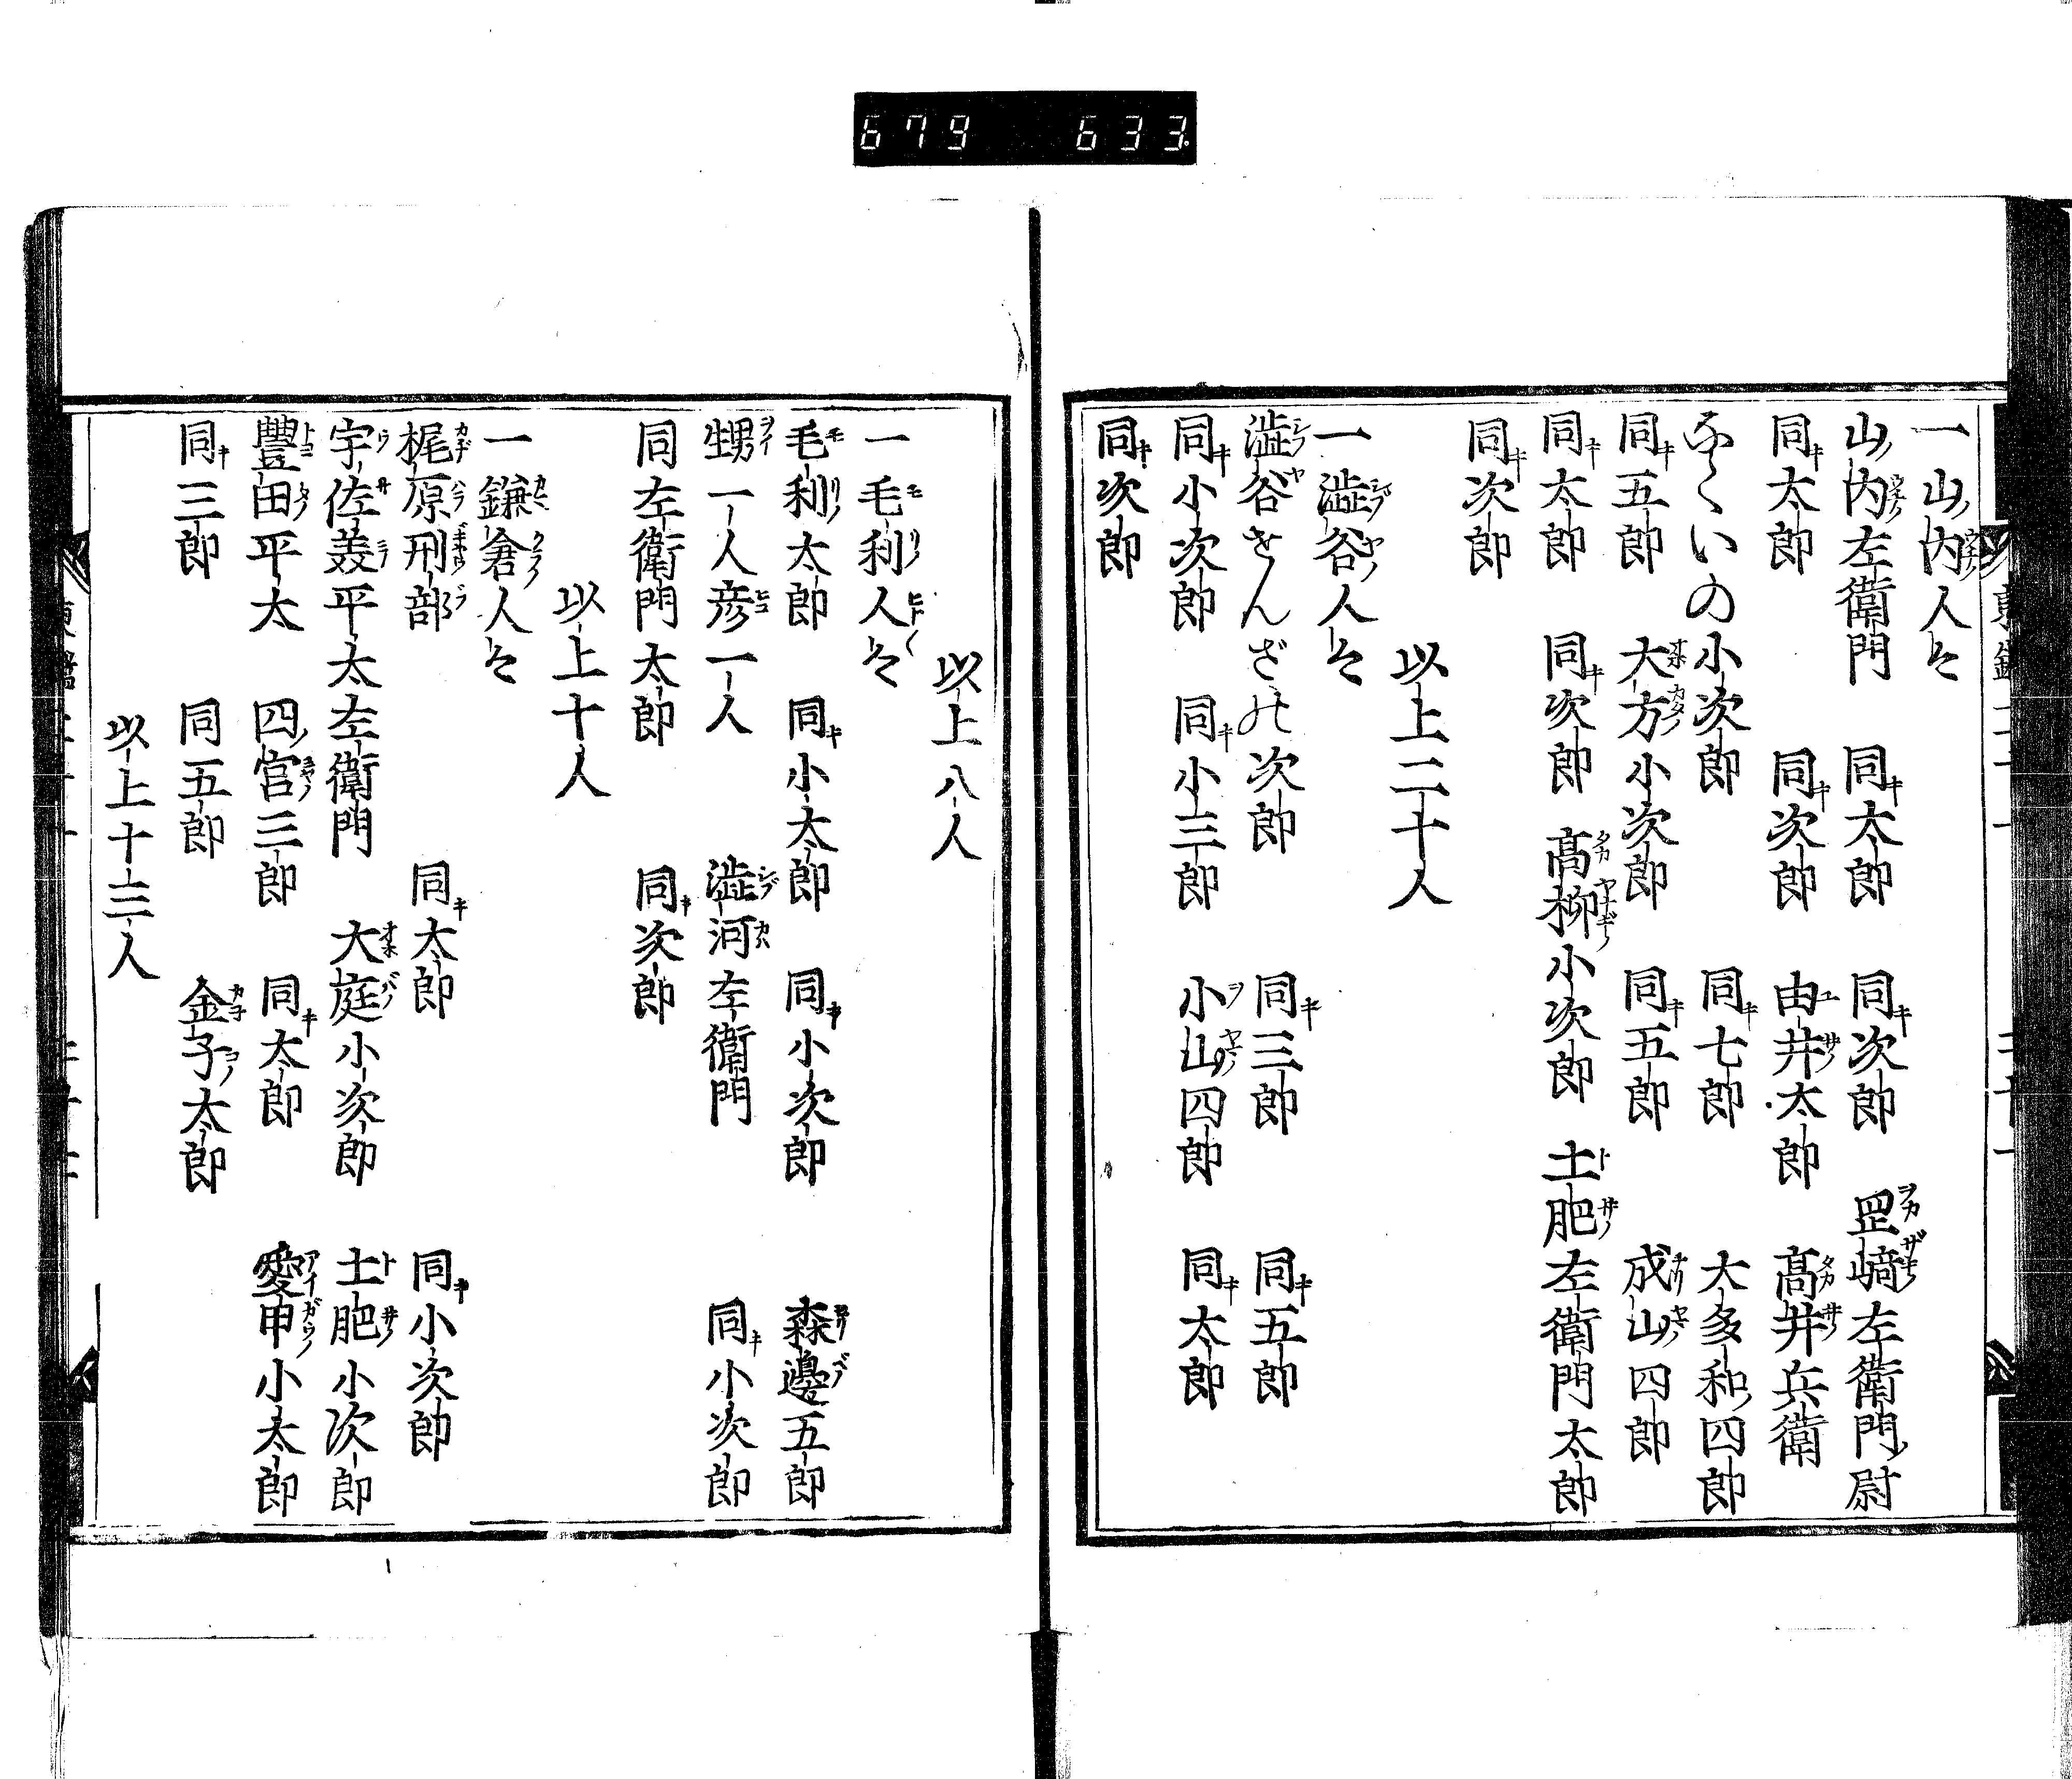 679 633
一山内人々
山内左衛門 同太郎 同次郎 罡﨑左衛門尉
同太郎 同次郎 由井太郎 髙井兵衛
ふくいの小次郎 同七郎 大多和四郎
同五郎 大方小次郎 同五郎 成山四郎
同太郎 同次郎 髙柳小次郎 土肥左衛門太郎
同次郎
以上二十人
一澁谷人々
澁谷せんざの次郎 同三郎 同五郎
同小次郎 同小三郎 小山四郎 同太郎
同次郎
以上八人
一毛利人々
毛利太郎 同小太郎 同小次郎 森邊五郎
甥一人彦一人 澁河左衛門 同小次郎
同左衛門太郎 同次郎
以上十人
一鎌倉人々
梶原刑部 同太郎 同小次郎
宇佐義平太左衛門 大庭小次郎 土肥小次郎
豐田平太 四宮三郎 同太郎 愛甲小太郎
同三郎 同五郎 金子太郎
以上十三人